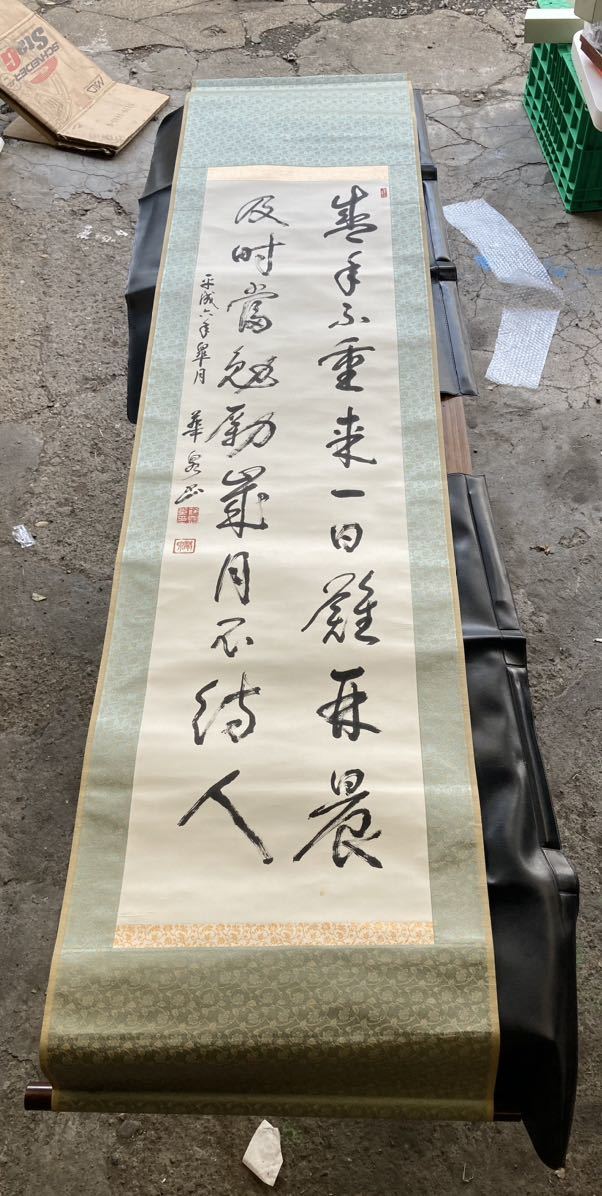 盛年不重来一日難再晨
及时當勉励歳月不待人
平成六年皐月
華
SCHNEIDER